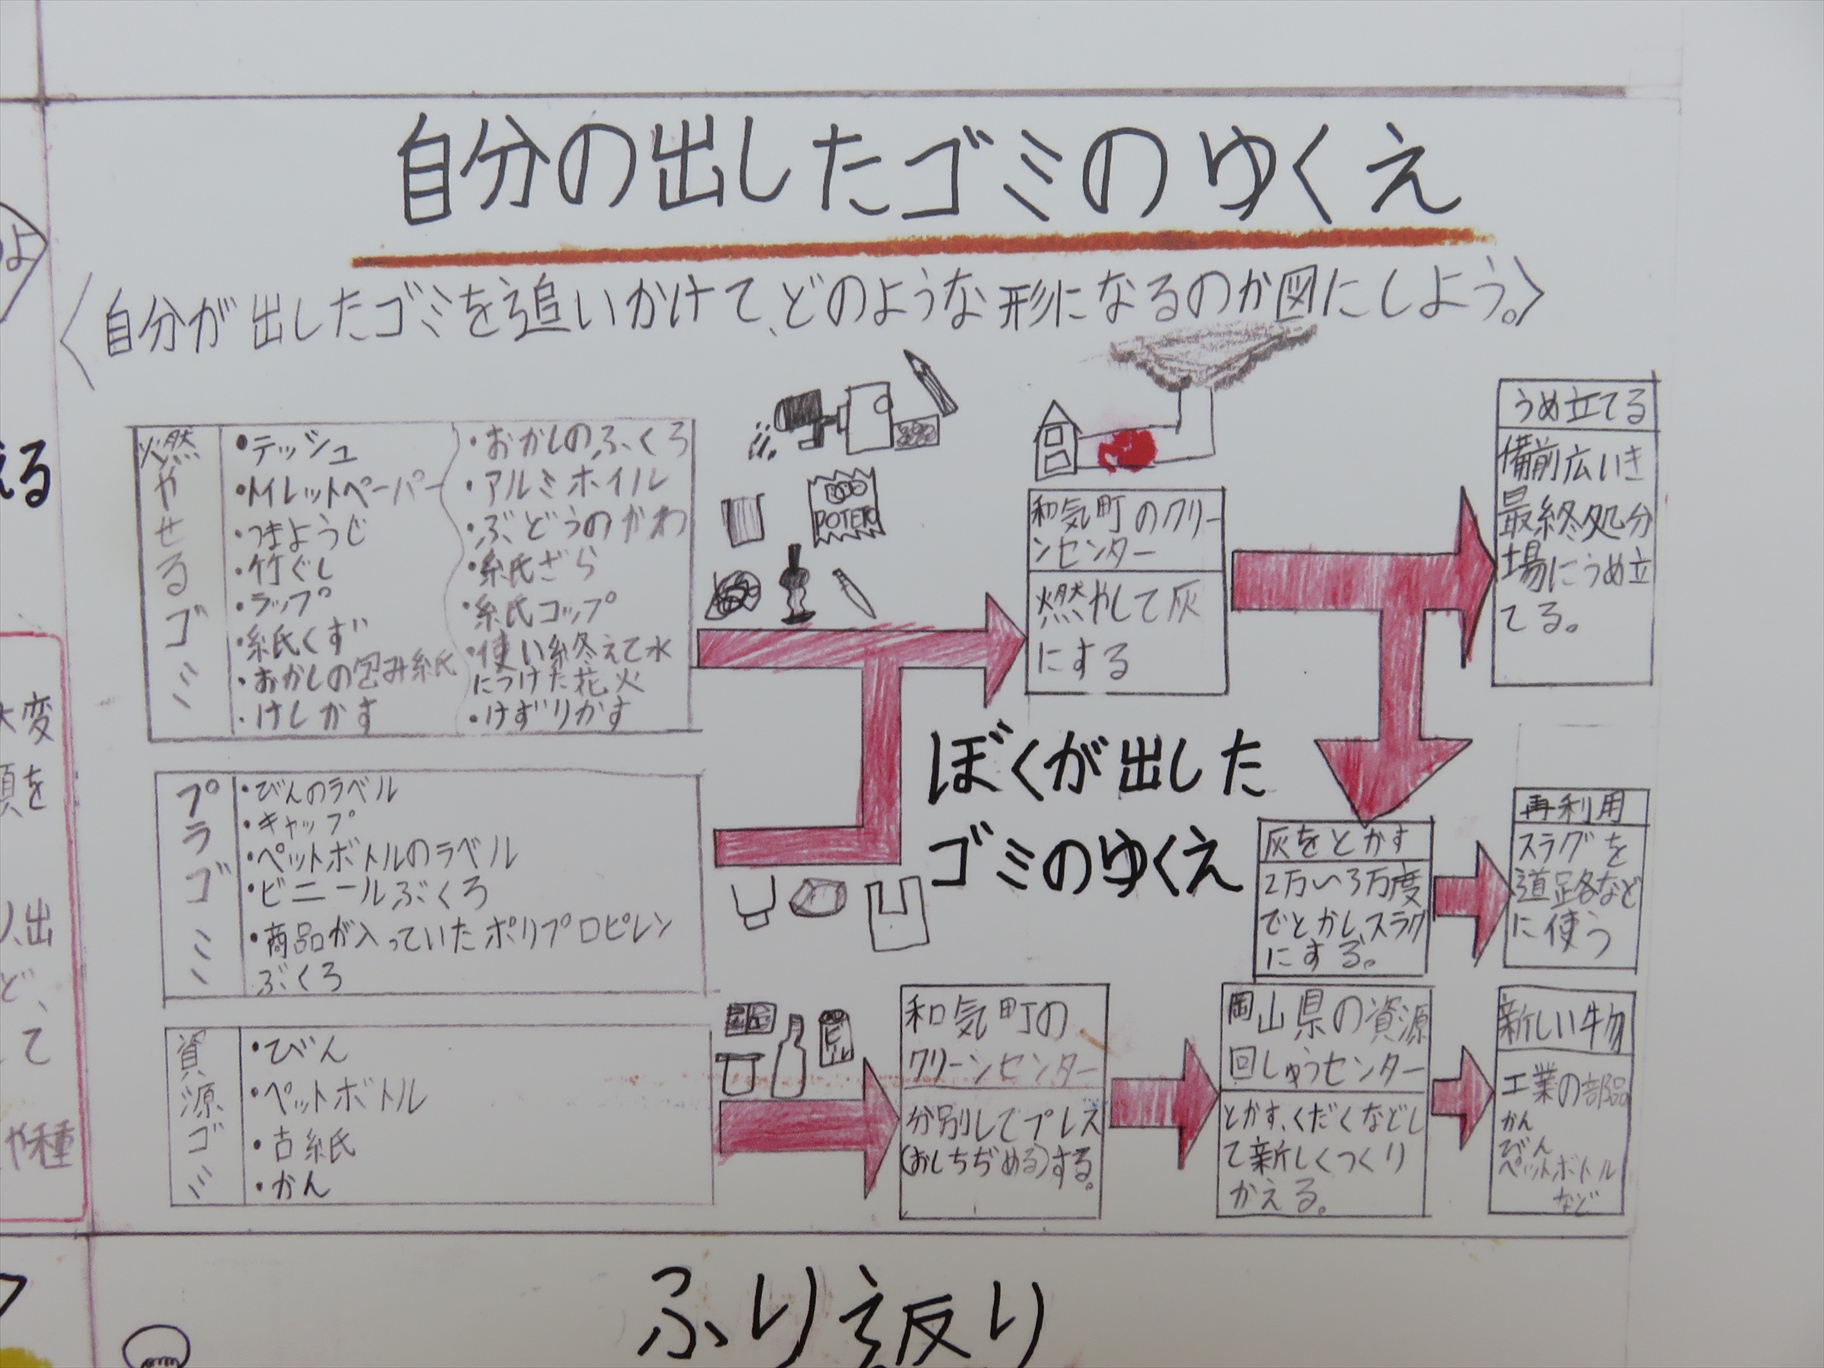 自分の出したゴミのゆくえ
〈自分が出したゴミを追いかけて、どのような形になるのか図にしよう。〉
燃やせるゴミ
・テッシュ
・トイレットペーパー
・つまようじ
・竹ぐし
・ラップ
・紙くず
・おかしの包み紙
・けしかす
・おかしのふくろ
・アルミホイル
・ぶどうのかわ
・紙ざら
・紙コップ
・使い終えて水
につけた花火
・けずりかす
POTETO
和気町のクリー
ンセンター
燃やして灰
にする
うめ立てる
備前広いき
最終処分
場にうめ立
てる。
プラゴミ
・びんのラベル
・キャップ
・ペットボトルのラベル
・ビニールぶくろ
・商品が入っていたポリプロピレン
ぶくろ
ぼくが出した
ゴミのゆくえ
灰をとかす
2万い3万度
でとかし、スラグ
にする。
再利用
スラグを
道路など
に使う
資源ゴミ
・びん
・ペットボトル
・古紙
・かん
和気町の
クリーンセンター
分別してプレス
(おしちぢめる)する。
岡山県の資源
回しゅうセンター
とかす、くだくなどし
て新しくつくり
かえる。
新しい物
工業の部品
かん
びん
ペットボトル
など
ふり返り
える
大変
頃を
出
ど、
して
や種